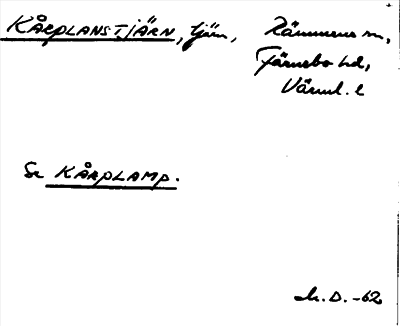 KÅRPLANSTJÄRN, tjärn, Rämmens sn,
Färnebo hd,
Värml. l
Se KÅRPLAMP.
D. -62